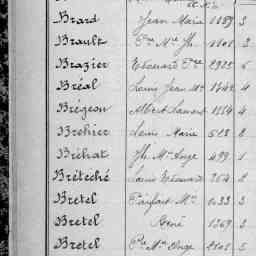 Brard Jean Marie 1089 3
Brault Pre Mie Jh
Brazier Edouard Pre 2925 5
Bréal Louis Jean Mie 1742 4
Brégeon Albert Laurent 1554 4
Bréhier Louis Marie 528 8
Bréhat Jh Mie Ange 499 1
Brétéché Louis Edouard 264 2
Bretel Parfait Mie 1033 3
Bretel René 1369 3
Bretel Pre Mie Ange 2